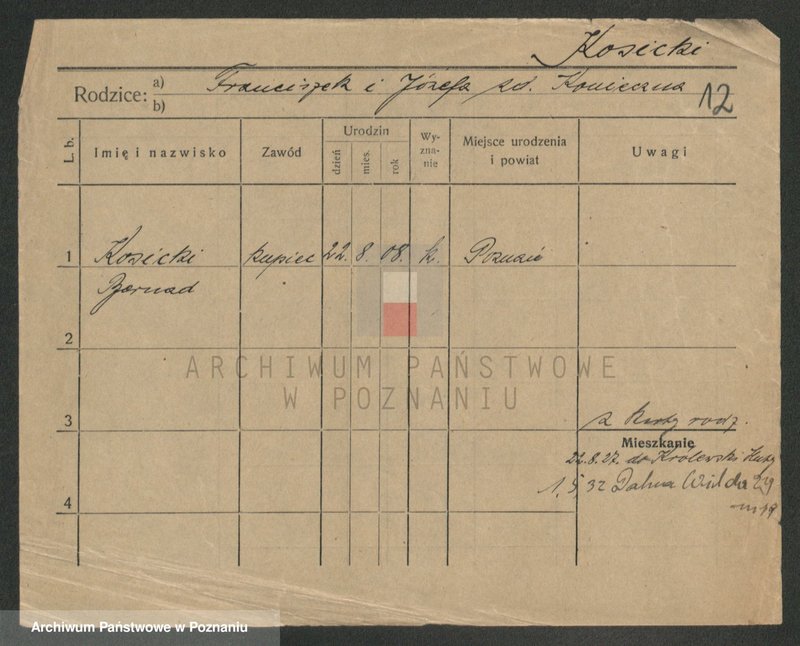 Kosicki
Rodzice: a) b) Franciszek i Józefa zd. Konieczna
12
L. b.
Imię i nazwisko
Zawód
Urodzin
dzień
mies.
rok
Wy-
zna-
nie
Miejsce urodzenia
i powiat
Uwagi
1 Kosicki kupiec 22. 8. 08. k. Poznań
Bernad
2
ARCHIWUM PAŃSTWOWE
W POZNANIU
3
z karty rodz.
Mieszkanie
22.8.27. do Królewski Huty
1.5 32 Dolna Wilda
m 19
4
Archiwum Państwowe w Poznaniu